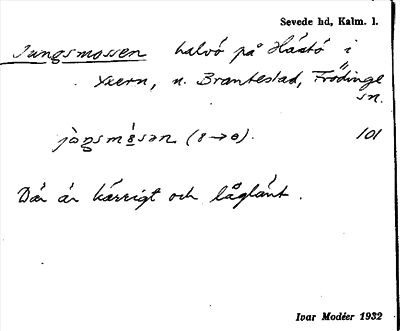 Sevede hd, Kalm. l.
Jungsmossen halvö på Hästö i
Yxern, n. Brantestad, Frödinge
sn.
(8→θ). 101
Där är kärrigt och låglänt.
Ivar Modéer 1932